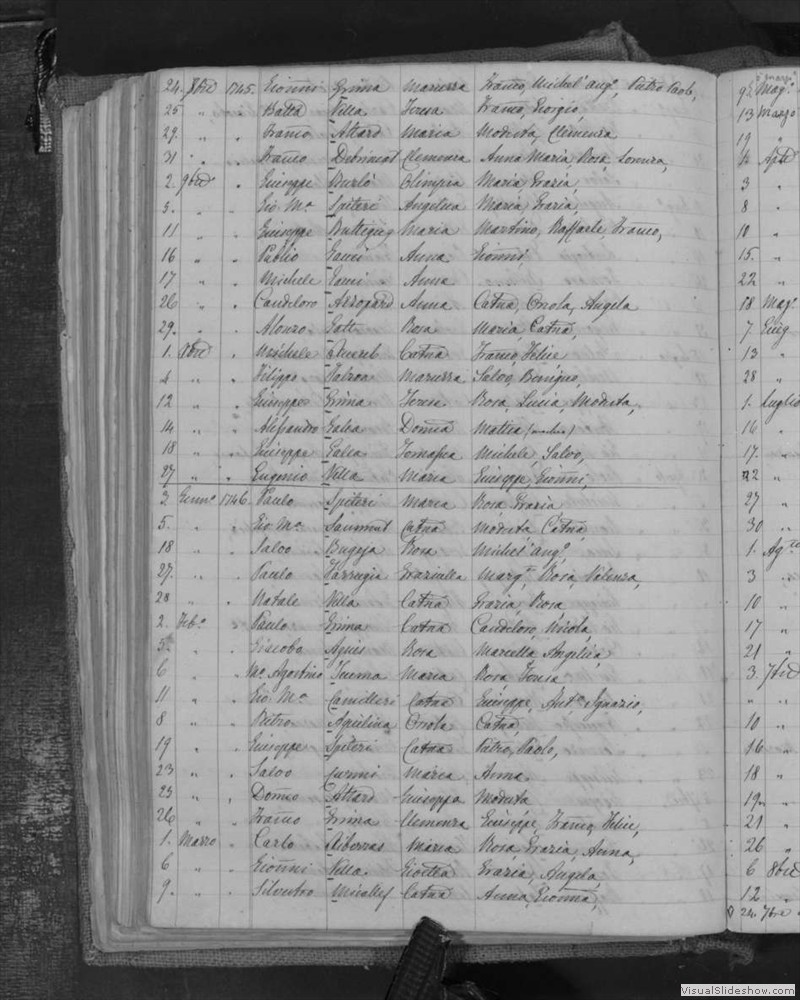 24. 8bre 1745. Gionni Grima Maruzza Franco, Michel'ang°, Pietro Paolo,
25 " " Batta Vella Teresa Franco, Giorgio,
29. " " Franco Attard Maria Modesta, Clemenza
31 " " Franco Clemenza Anna Maria, Rosa, Lorenza,
2. 9bre " Giuseppe Burlò Olimpia Maria, Grazia,
5. " " Gio Ma Spiteri Angelica Maria, Grazia,
11 " " Giuseppe Buttigieg Maria Martino, Raffaele, Franco,
16 " " Publio Gauci Anna Gionni,
17 " " Michele Gauci Anna
26 " " Candiloro Azzopard Anna Catna, Orsola, Angela
29. " " Alonzo Gatt Rosa Maria, Catna,
1. Xbre " Michele Catna Franco, Felice,
4 " " Filippo Maruzza Salvo, Benigno,
12 " " Giuseppe Grima Teresa Rosa, Lucia, Modesta,
14 " " Alessandro Galea Domca Mattea
18 " " Giuseppe Galea Tomasa Michele, Salvo,
27 " " Eugenio Vella Maria Giuseppe, Gionni,
3. Genno 1746. Paulo Spiteri Maria Rosa, Grazia,
5. " " Gio Ma Sammut Catna Modesta, Catna,
18 " " Salvo Bugeja Rosa Michel'ang°,
27. " " Paulo Farrugia Graziulla Margta, Rosa, Valenza,
28 " " Natale Vella Catna Grazia, Rosa,
2. Feb° " Paulo Grima Catna Candiloro, Nicola,
5. " " Giacobo Agius Rosa Marcella, Angelica,
6 " " Ma Agostino Maria Rosa, Teresa
11 " " Gio Ma Camilleri Catna Giuseppe, Anto, Ignazio,
8 " " Pietro Apulina Orsola Catna,
19 " " Giuseppe Spiteri Catna Pietro, Paolo,
23 " " Salvo Curmi Maria Anna
25 " " Domco Attard Giuseppa Modesta
26 " " Franco Grima Clemenza Giuseppe, Franco, Felice,
1. Marzo " Carlo Maria Rosa, Grazia, Anna,
6 " " Gionni Vella Grazia, Angela,
9. " " Silvestro Micallef Catna Anna, Gionna,
Mag°
13 Marzo
19 "
Aple
3 "
8 "
10 "
15. "
22 "
18 Mag°
7 Giug
13 "
28 "
1. Luglio
16 "
17. "
22 "
27 "
30 "
1. Agto
3 "
10 "
17 "
21 "
3. 7bre
" "
10 "
16 "
18 "
19 "
21 "
26 "
6 8bre
12 "
24. 7bre
VisualSlideshow.com